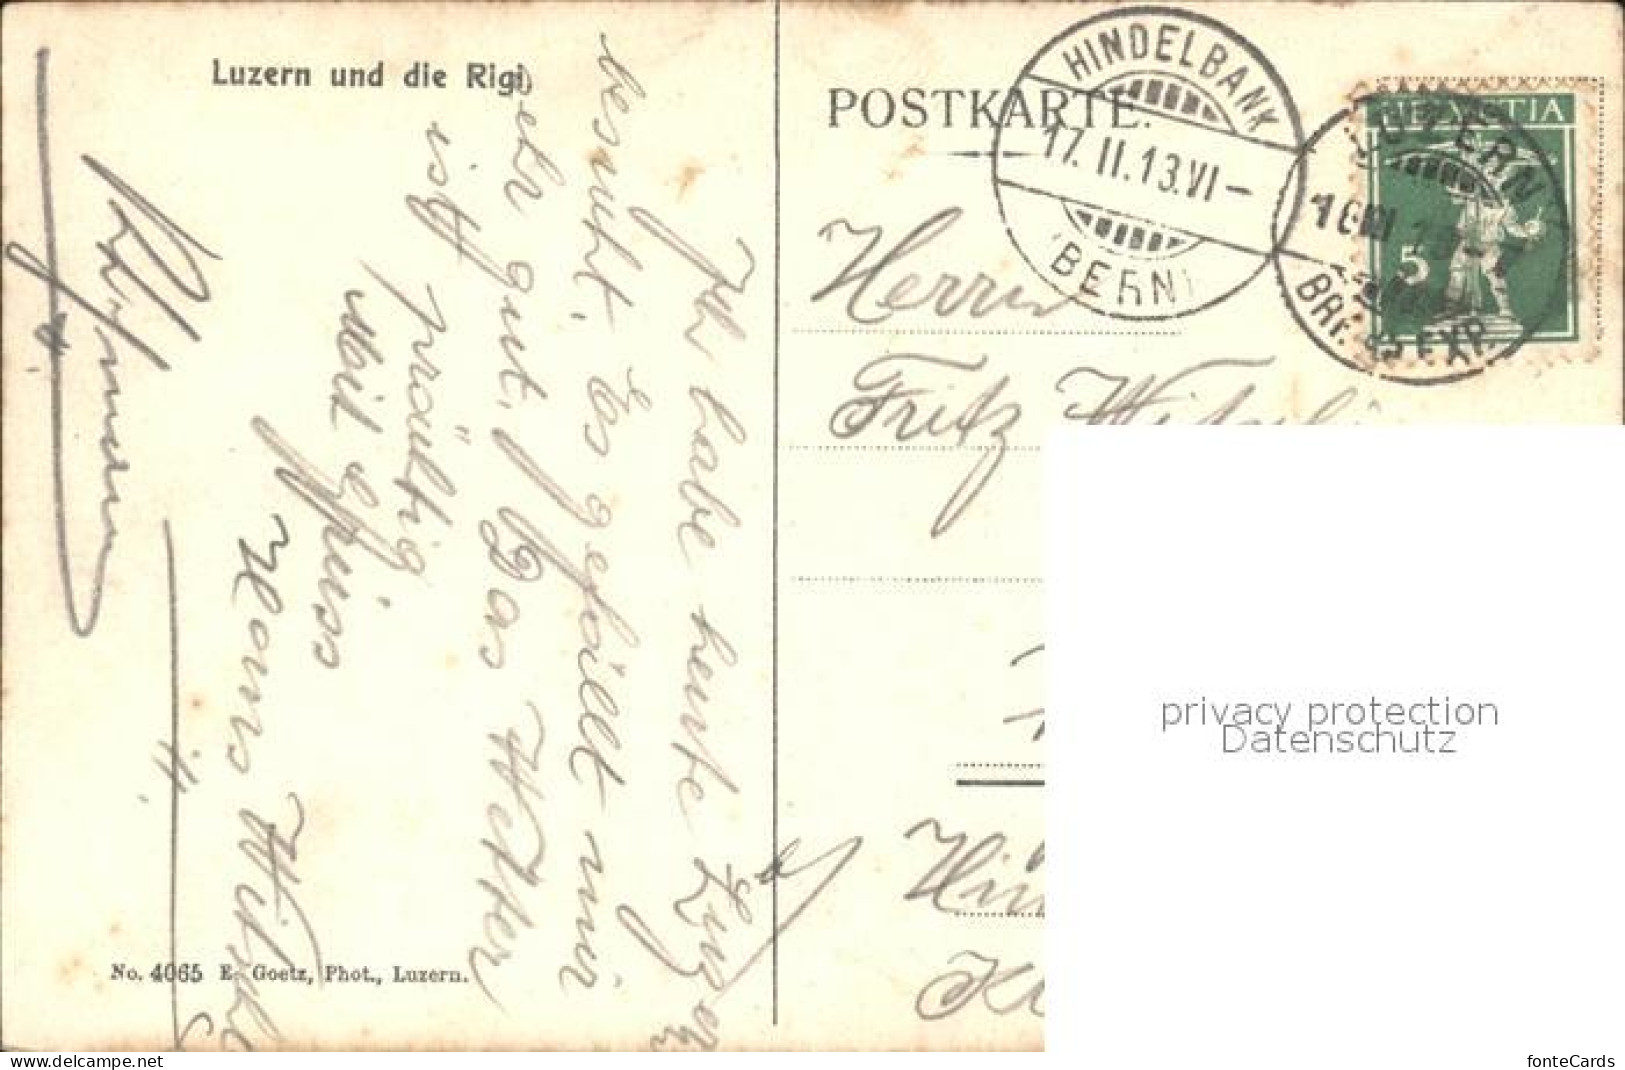 Luzern und die Rigi
POSTKARTE.
HINDELBANK
17. II. 13. VI -
(BERN)
LUZERN
BRF. EXP.
HELVETIA
5
Ich habe heute Luzern
besucht. Es gefällt mir
sehr gut. Das Wetter
ist prächtig
Mit Gruss
Hans
Herrn
Fritz
No. 4065 E. Goetz, Phot., Luzern.
privacy protection
Datenschutz
www.delcampe.net
fonteCards